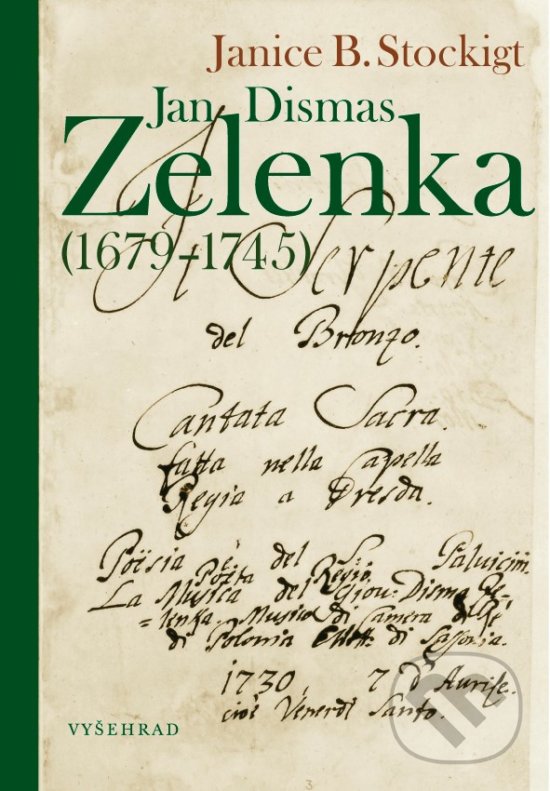 Janice B. Stockigt
Jan Dismas
Zelenka
(1679–1745)
Il Serpente
del Bronzo.
Cantata Sacra.
fatta nella Capella
Regia a Dresda.
Poësia è del S. Palvicini
Poëta Regio,
La Musica del Giov: Disma Ze-
=lenka, Musico di Camera
di Polonia di Sassonia.
1730, 7 d'Aurile.
cioè Venerdi Santo.
VYŠEHRAD
m
3